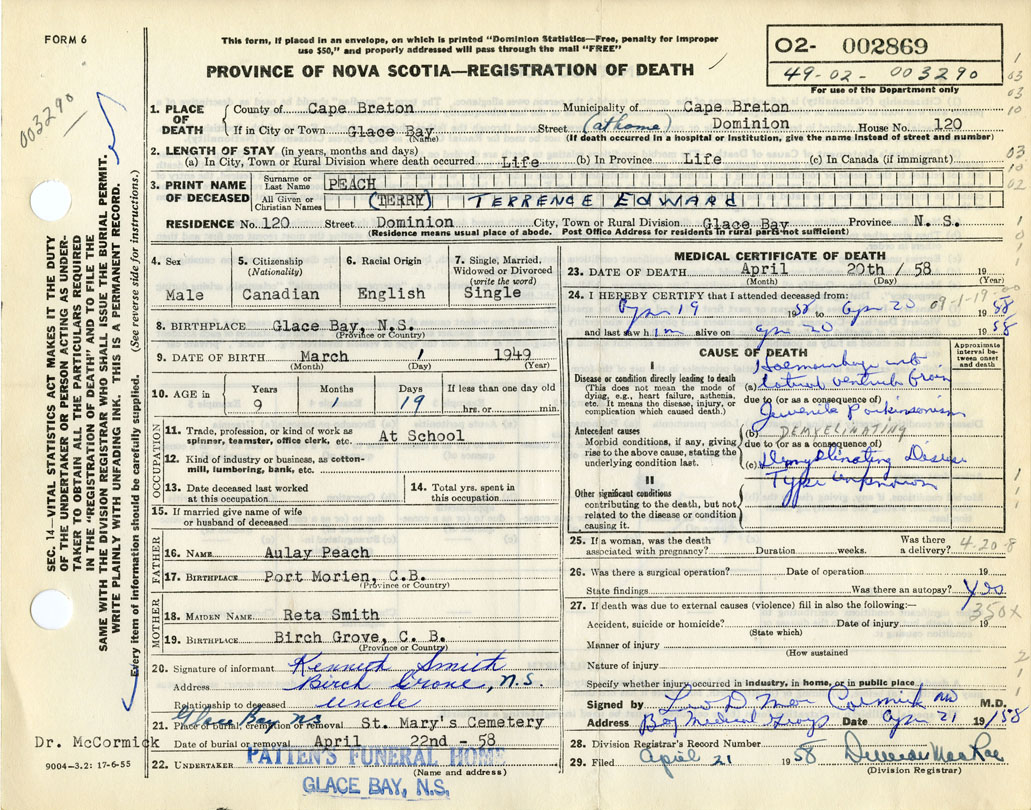 FORM 6
This form, if placed in an envelope, on which is printed "Dominion Statistics—Free, penalty for improper
use $50," and properly addressed will pass through the mail "FREE"
PROVINCE OF NOVA SCOTIA—REGISTRATION OF DEATH
02- 002869
49-02- 003290
For use of the Department only
003290
SEC. 14—VITAL STATISTICS ACT MAKES IT THE DUTY
OF THE UNDERTAKER OR PERSON ACTING AS UNDER-
TAKER TO OBTAIN ALL THE PARTICULARS REQUIRED
IN THE "REGISTRATION OF DEATH" AND TO FILE THE
SAME WITH THE DIVISION REGISTRAR WHO SHALL ISSUE THE BURIAL PERMIT.
WRITE PLAINLY WITH UNFADING INK. THIS IS A PERMANENT RECORD.
Every item of information should be carefully supplied. (See reverse side for instructions.)
1. PLACE OF DEATH County of Cape Breton Municipality of Cape Breton
If in City or Town Glace Bay Street (at home) Dominion House No. 120
(Name) (If death occurred in a hospital or institution, give the name instead of street and number)
2. LENGTH OF STAY (in years, months and days)
(a) In City, Town or Rural Division where death occurred Life (b) In Province Life (c) In Canada (if immigrant)
3. PRINT NAME OF DECEASED Surname or Last Name PEACH
All Given or Christian Names (TERRY) TERRENCE EDWARD
RESIDENCE No. 120 Street Dominion City, Town or Rural Division Glace Bay Province N. S.
(Residence means usual place of abode. Post Office Address for residents in rural parts not sufficient)
4. Sex Male
5. Citizenship (Nationality) Canadian
6. Racial Origin English
7. Single, Married, Widowed or Divorced (write the word) Single
8. BIRTHPLACE Glace Bay, N.S.
(Province or Country)
9. DATE OF BIRTH March 1 1949
(Month) (Day) (Year)
10. AGE in Years 9 Months 1 Days 19 If less than one day old hrs. or min.
OCCUPATION
11. Trade, profession or kind of work as spinner, teamster, office clerk, etc. At School
12. Kind of industry or business, as cotton-mill, lumbering, bank, etc.
13. Date deceased last worked at this occupation
14. Total yrs. spent in this occupation
15. If married give name of wife or husband of deceased
FATHER
16. NAME Aulay Peach
17. BIRTHPLACE Port Morien, C.B.
(Province or Country)
MOTHER
18. MAIDEN NAME Reta Smith
19. BIRTHPLACE Birch Grove, C. B.
(Province or Country)
20. Signature of informant Kenneth Smith
Address Birch Grove, N.S.
Relationship to deceased uncle
Glace Bay NS
21. Place of burial, cremation or removal St. Mary's Cemetery
Date of burial or removal April 22nd - 58
Dr. McCormick
22. UNDERTAKER PATTEN'S FUNERAL HOME
(Name and address)
GLACE BAY, N.S.
9004-3.2: 17-6-55
MEDICAL CERTIFICATE OF DEATH
23. DATE OF DEATH April 20th / 58 19
(Month) (Day) (Year)
24. I HEREBY CERTIFY that I attended deceased from:
Apr 19 1958 to Apr 20 1958
09-1-19
and last saw him alive on Apr 20 1958
CAUSE OF DEATH
Approximate interval between onset and death
I
Disease or condition directly leading to death
(This does not mean the mode of dying, e.g., heart failure, asthenia, etc. It means the disease, injury, or complication which caused death.)
(a) Haemorrhage into lateral ventricle brain
due to (or as a consequence of)
Juvenile Parkinsonism
Antecedent causes
Morbid conditions, if any, giving rise to the above cause, stating the underlying condition last.
(b) DEMYELINATING
due to (or as a consequence of)
(c) Demyelinating Disease
Type unknown
II
Other significant conditions contributing to the death, but not related to the disease or condition causing it.
25. If a woman, was the death associated with pregnancy? Duration weeks. Was there a delivery?
4-20-8
26. Was there a surgical operation? Date of operation 19
State findings Was there an autopsy? Yes
27. If death was due to external causes (violence) fill in also the following:—
350X
Accident, suicide or homicide? Date of injury 19
(State which)
Manner of injury
(How sustained
Nature of injury
Specify whether injury occurred in industry, in home, or in public place
Signed by Cormick MD M.D.
Address Bay Medical Date Apr 21 19/58
28. Division Registrar's Record Number
29. Filed April 21 1958
(Division Registrar)